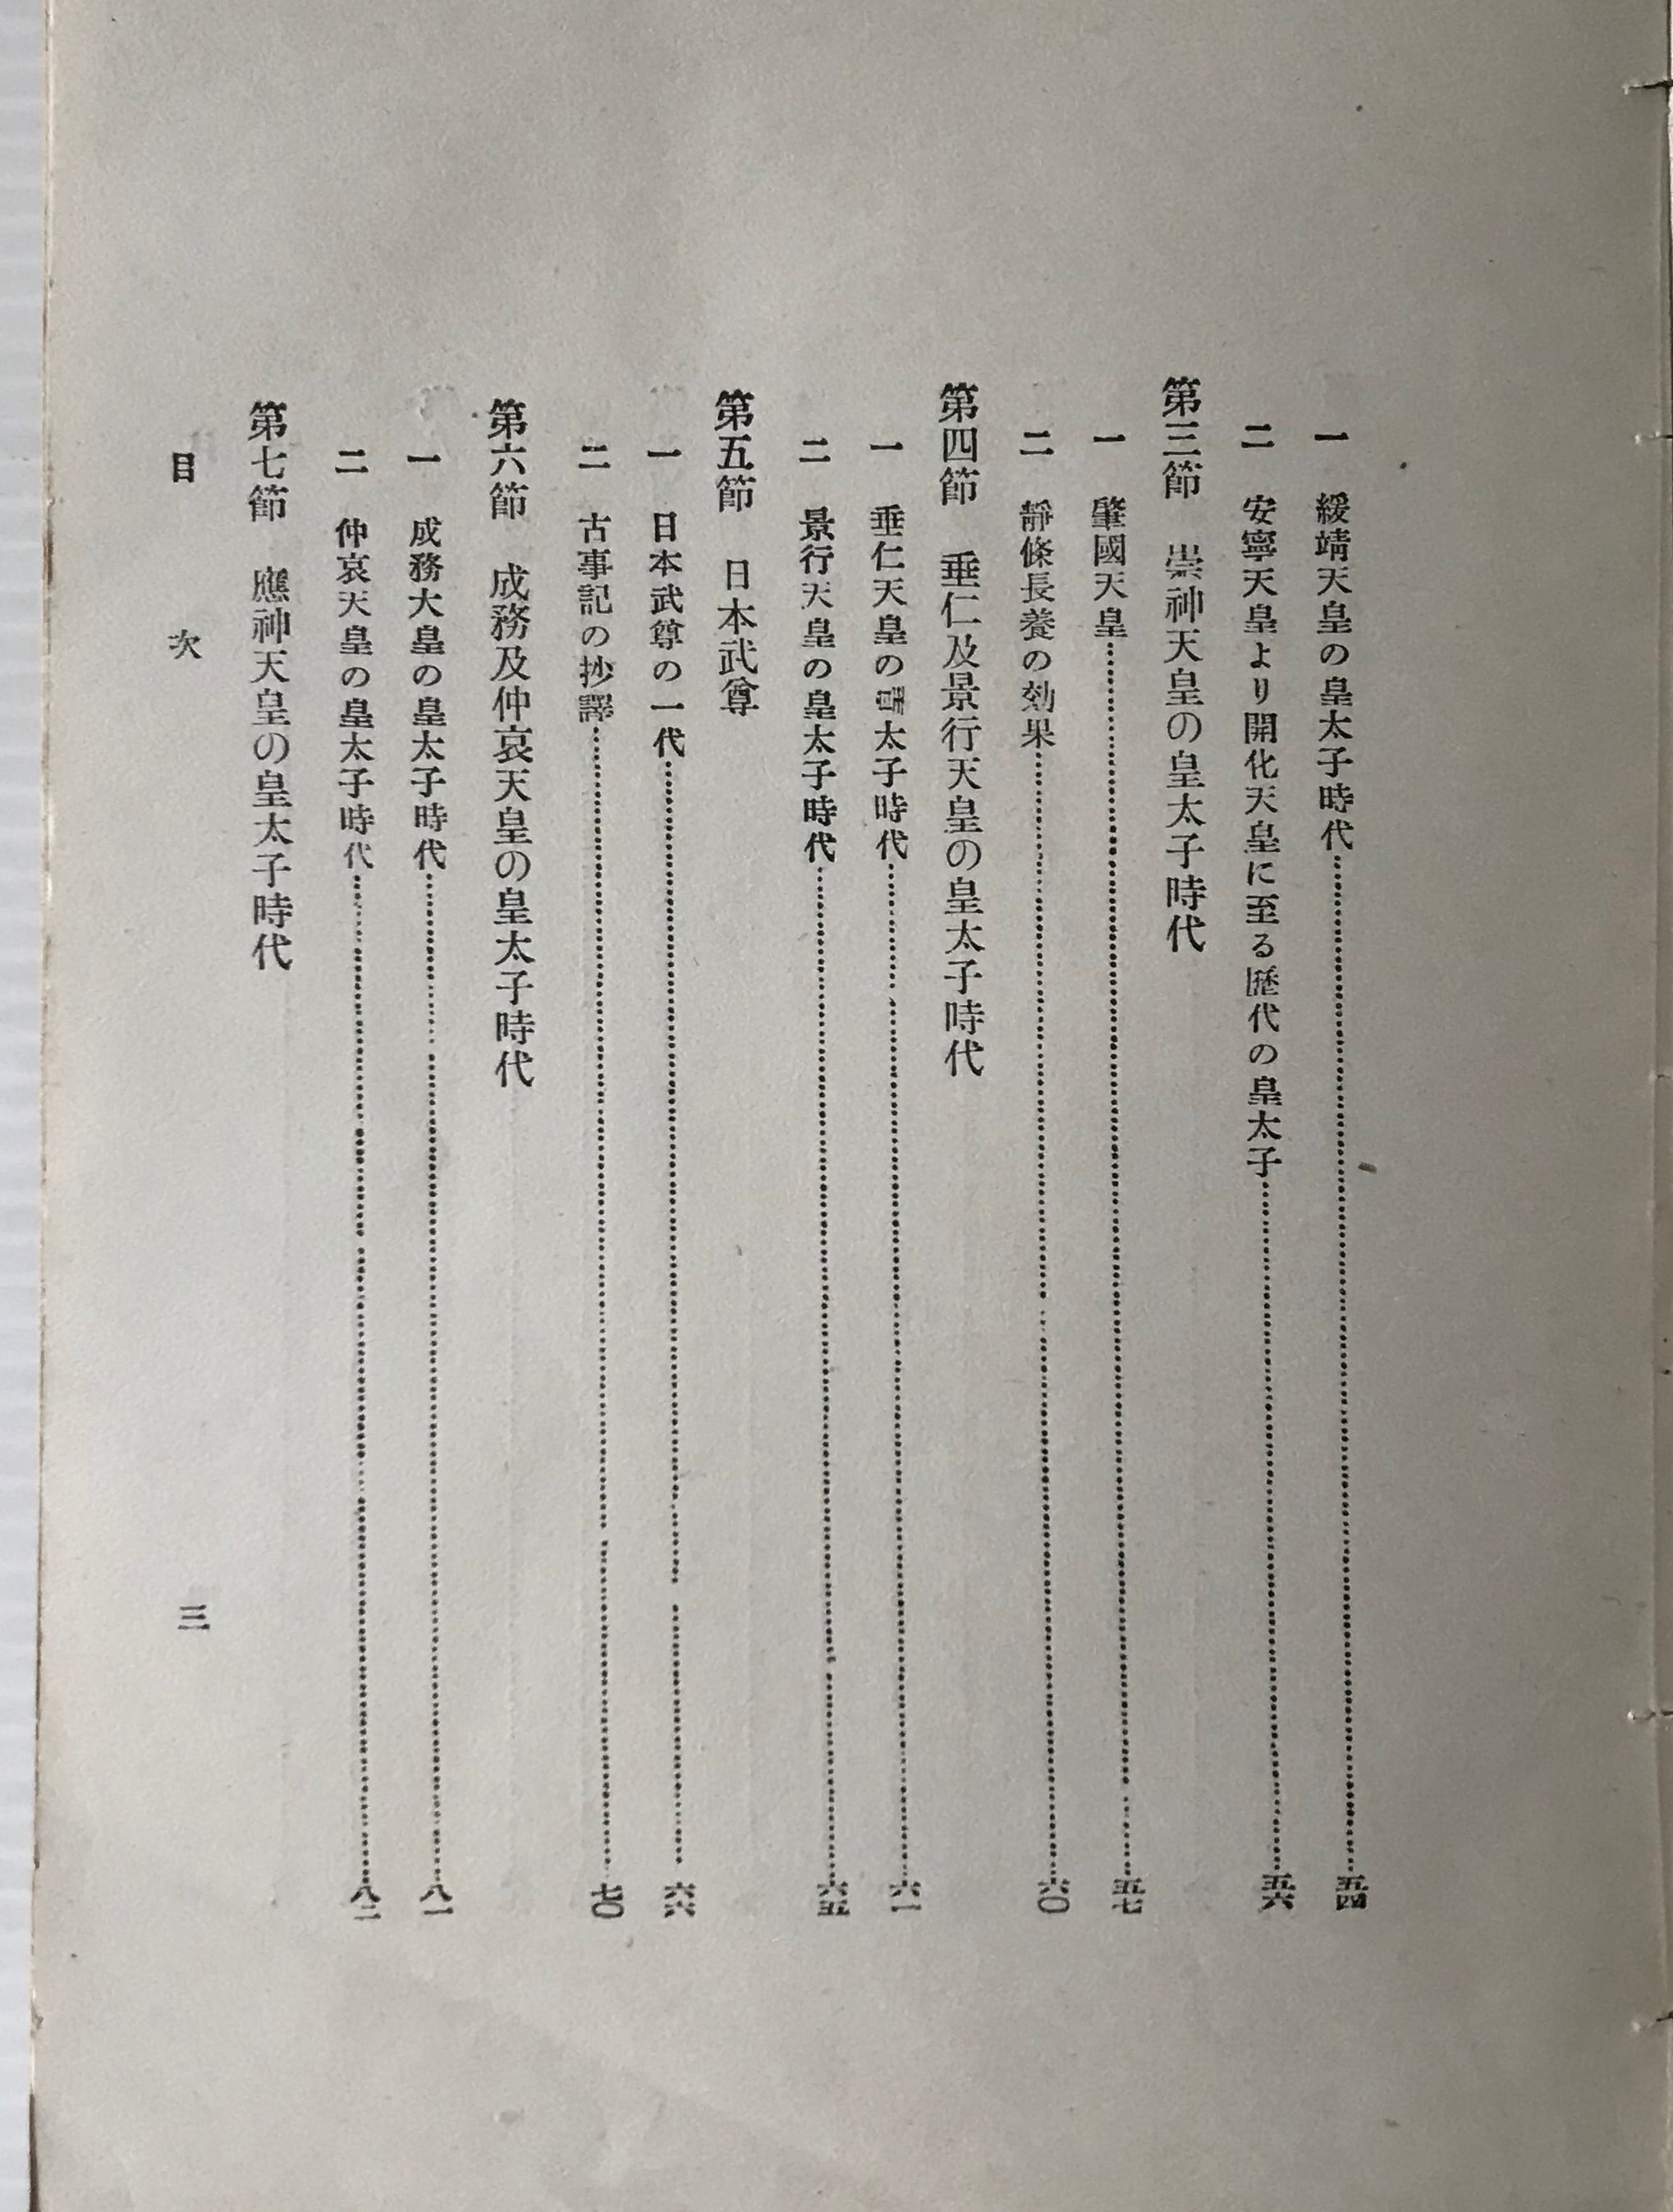 一　緩靖天皇の皇太子時代……五四
二　安寧天皇より開化天皇に至る歷代の皇太子……五六
第三節　崇神天皇の皇太子時代
一　肇國天皇……五七
二　靜條長養の効果……六〇
第四節　垂仁及景行天皇の皇太子時代
一　垂仁天皇の皇太子時代……六一
二　景行天皇の皇太子時代……六五
第五節　日本武尊
一　日本武尊の一代……六六
二　古事記の抄譯……七〇
第六節　成務及仲哀天皇の皇太子時代
一　成務大皇の皇太子時代……八一
二　仲哀天皇の皇太子時代……八二
第七節　應神天皇の皇太子時代
目次　三